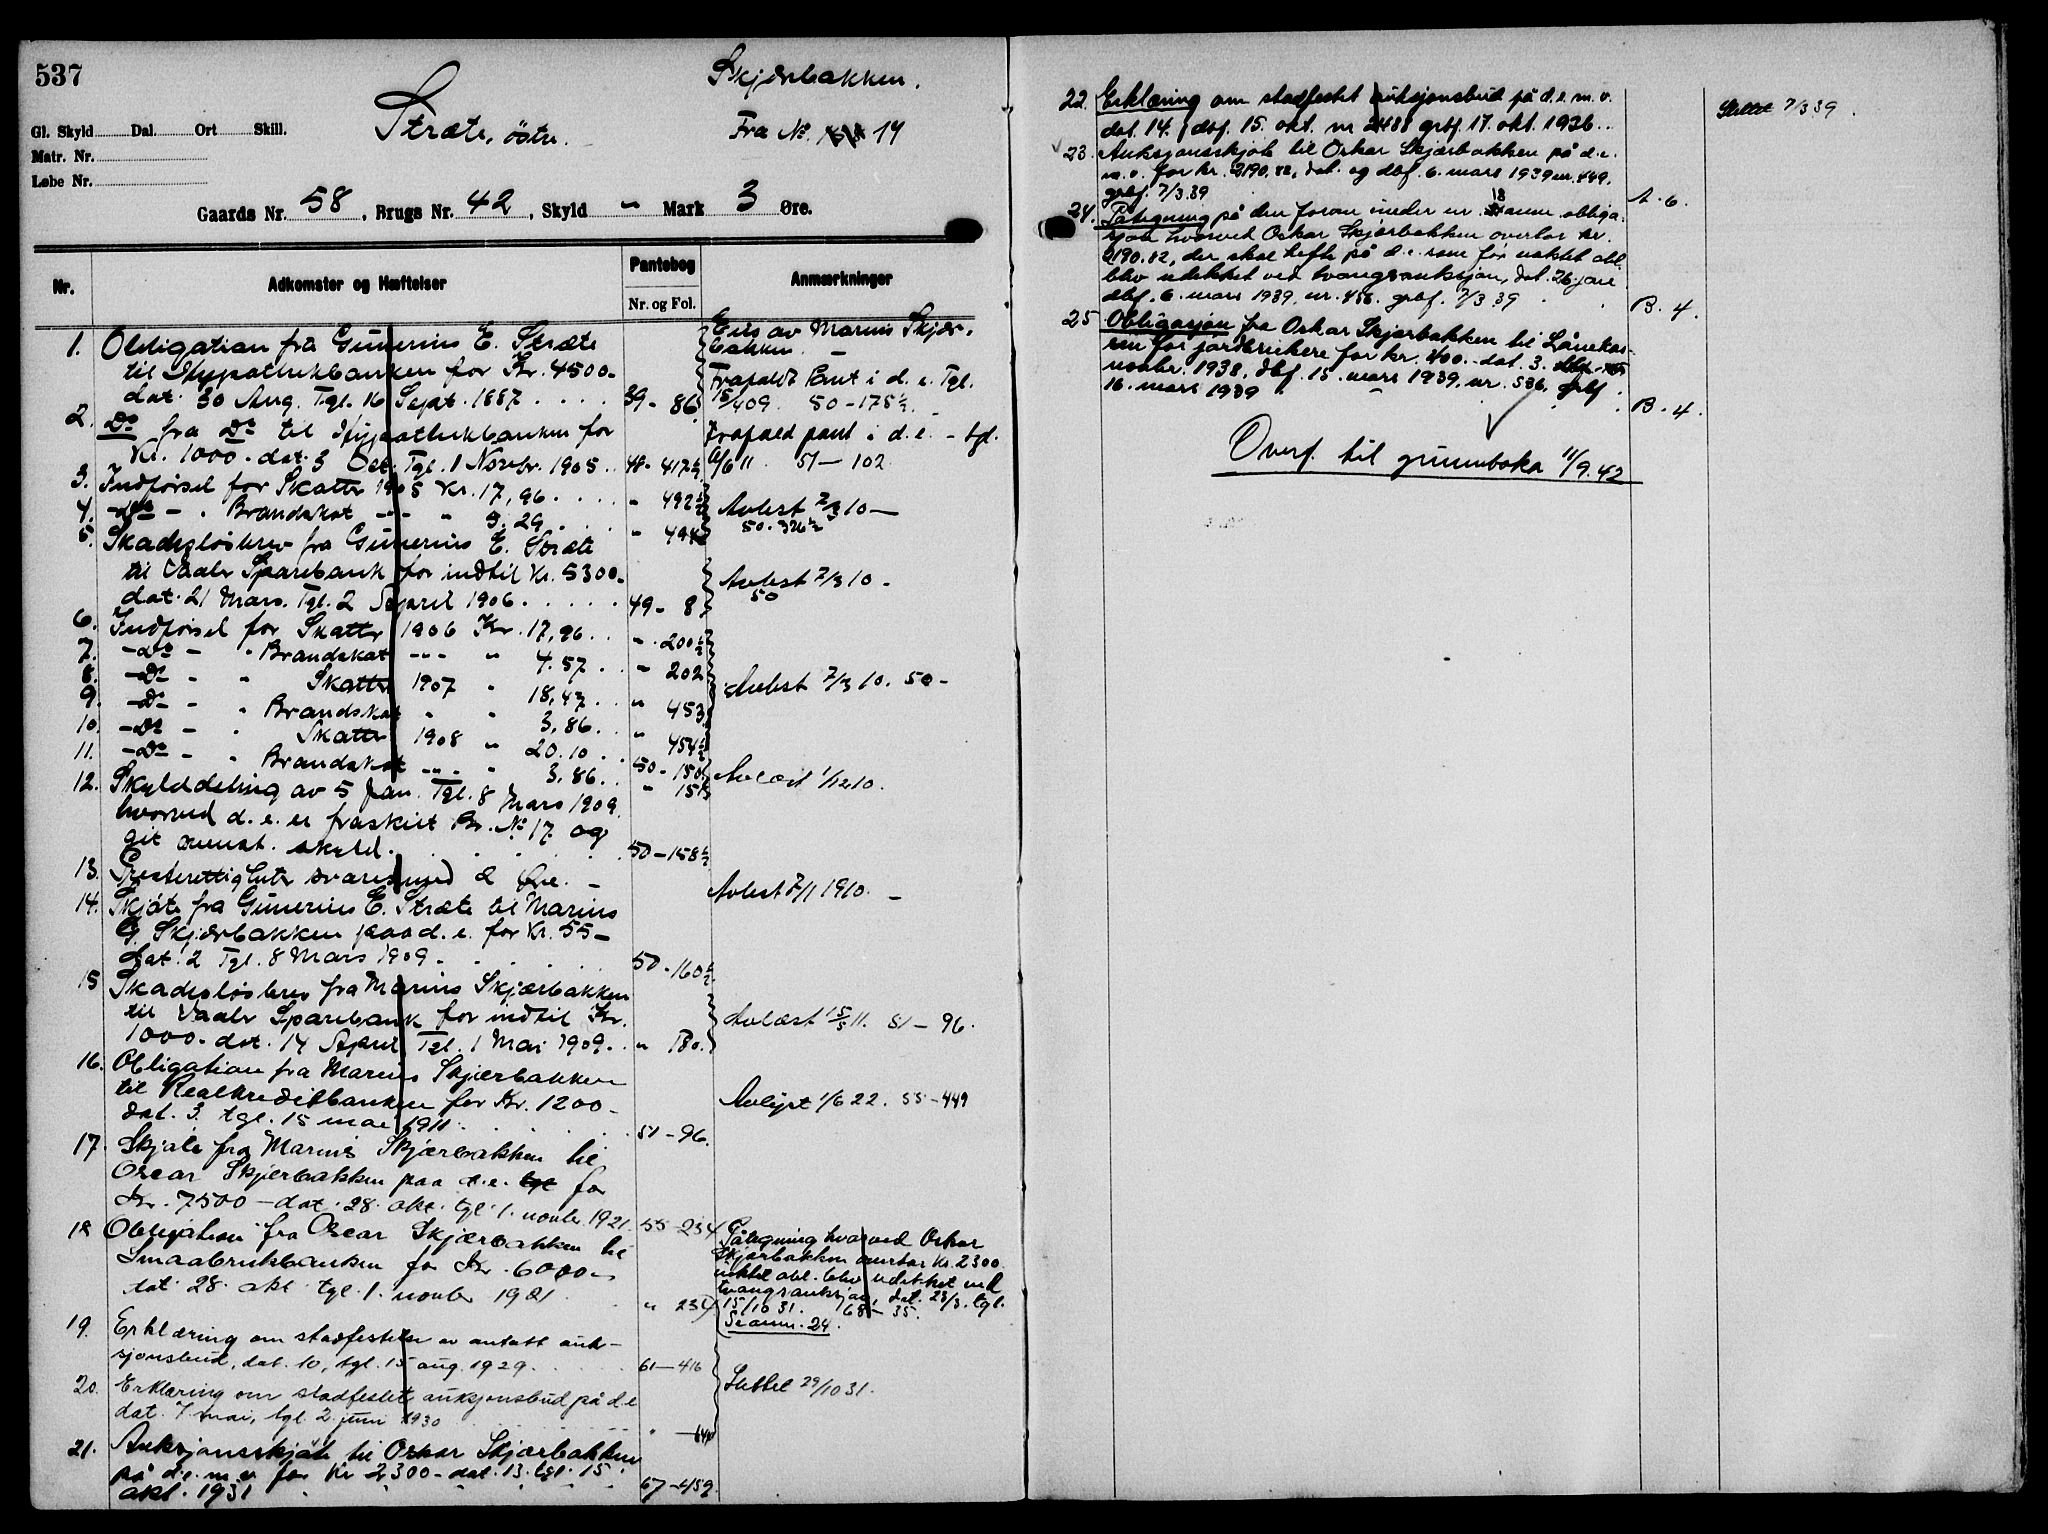 537
Skjærbakken.
Stræte, östre.
Fra No. 14
Gl. Skyld Dal. Ort Skill.
Matr. Nr.
Løbe Nr.
Gaards Nr. 58, Brugs Nr. 42, Skyld " Mark 3 Øre.
Nr. Adkomster og Hæftelser Pantebog Anmærkninger
Nr. og Fol.
1. Obligation fra Gunerius E. Stræte
til Hypothekbanken for Kr. 4500-
dat. 30 Aug. Tgl. 16 Sept. 1887 . . . . 39 - 86
Eies av Marius Skjær-
bakken. -
Frafaldt Pant i d. e. Tgl.
15/409. 50-175½.
2. Do fra Do til Hypothekbanken for
Kr. 1000- dat. 3 Oct. Tgl. 1 Novbr. 1905 . . 48 - 417½
Frafald pant i d. e. - tgl.
/6 11. 51 - 102
3. Indførsel for Skatter 1905 Kr. 17,96 . . . . " 492½
4. -do- " Brandskat -"- " 3.29 . . . " 494
Avlest 7/3 10 -
50. 326½
5. Skadesløsbrev fra Gunerius E. Stræte
til Vaaler Sparebank for indtil Kr. 5300-
dat. 21 Mars. Tgl. 2 April 1906 . . . . . 49 - 8
Avlest 7/3 10 -
50
6. Indførsel for Skatter 1906 Kr. 17,96 . . " 200½
7. -do- " Brandskat -"- " 4.57 . . " 202
8. -do- " Skatter 1907 " 18,47 . . " 453
9. -do- " Brandskat " " 3,86 . . " 454½
Avlest 7/3 10. 50 -
10. -do- " Skatter 1908 " 20.10 . . 50 - 150
11. -do- " Brandskat -"- " 3,86 . . " 151½
Avlæst 1/12 10.
12. Skylddeling av 5 Jan. Tgl. 8 Mars 1909
hvorved d. e. er fraskilt Br. No 17 og
git anmt. skyld. . . . . . 50 - 158½
13. Presterettigheter svares med 2 Øre. -
Avlest 7/1 1910. -
14. Skjøte fra Gunerius E. Stræte til Marius
G. Skjærbakken paa d. e. for Kr. 55-
dat. 2 Tgl. 8 Mars 1909 . . . . . 50 - 160½
15 Skadesløsbrev fra Marius Skjærbakken
til Vaaler Sparebank for indtil Kr.
1000- dat. 14 April Tgl. 1 Mai 1909. . " 180.
Avlæst 15/5 11. 51 - 96.
16. Obligation fra Marius Skjærbakken
til Realkreditbanken for Kr. 1200-
dat. 3. tgl. 15 mai 1911. . . . . . 51 - 96.
Avlyst 1/6 22. 55 - 449
17. Skjøte fra Marius Skjærbakken til
Oscar Skjærbakken paa d. e. for
Kr. 7500 - dat. 28. okt. tgl. 1. novbr. 1921. 55 - 234
18 Obligation fra Oscar Skjærbakken til
Smaabrukbanken for Kr. 6000-
dat. 28. okt. tgl. 1. novbr 1921. . . " 234
Påtegning hvorved Oskar
Skjærbakken overtar Kr. 2300.
uektet obl. blev udekket ved
tvangsauksjon, dat. 23/3. tgl.
15/10 31. 68 - 35.
Se anm. 24.
19. Erklæring om stadfestelse av antatt auk-
sjonsbud, dat. 10, tgl. 15 aug. 1929 . . . . 61 - 416
20. Erklæring om stadfestet auksjonsbud på d.e
dat. 7 mai, tgl. 2. juni 1930 . . . . "
Slettet 29/10 31.
21. Auksjonsskjøte til Oskar Skjærbakken
på d. e. m. v. for Kr 2300- dat. 13. tgl. 15.
okt. 1931 . . . . . 67 - 459.
22. Erklæring om stadfestet auksjonsbud på d. e. m. v.
dat. 14. dbf. 15. okt. nr 2488 grbf. 17. okt. 1936 . .
Slettet 7/3 39.
23. Auksjonsskjøte til Oskar Skjærbakken på d. e.
m. v. for kr. 2190.82, dat. og dbf. 6. mars 1939 nr. 449,
grbf. 7/3.39 A. 6.
24. Påtegning på den foran under nr. 18 anm. obliga-
sjon hvorved Oskar Skjærbakken overtar kr.
2190.82, der skal hefte på d. e. som før uaktet obl.
blev udekket ved tvangsauksjon, dat. 26 jan.
dbf. 6. mars 1939, nr. 458. grbf. 7/3 39 . . B. 4.
25 Obligasjon fra Oskar Skjærbakken til Lånekas-
sen for jordbrukere for kr. 400.- dat. 3.
novbr. 1938, dbf. 15. mars 1939, nr. 536, grbf.
16. mars 1939 . . . . B. 4.
Overf. til grunnboka 11/9.42